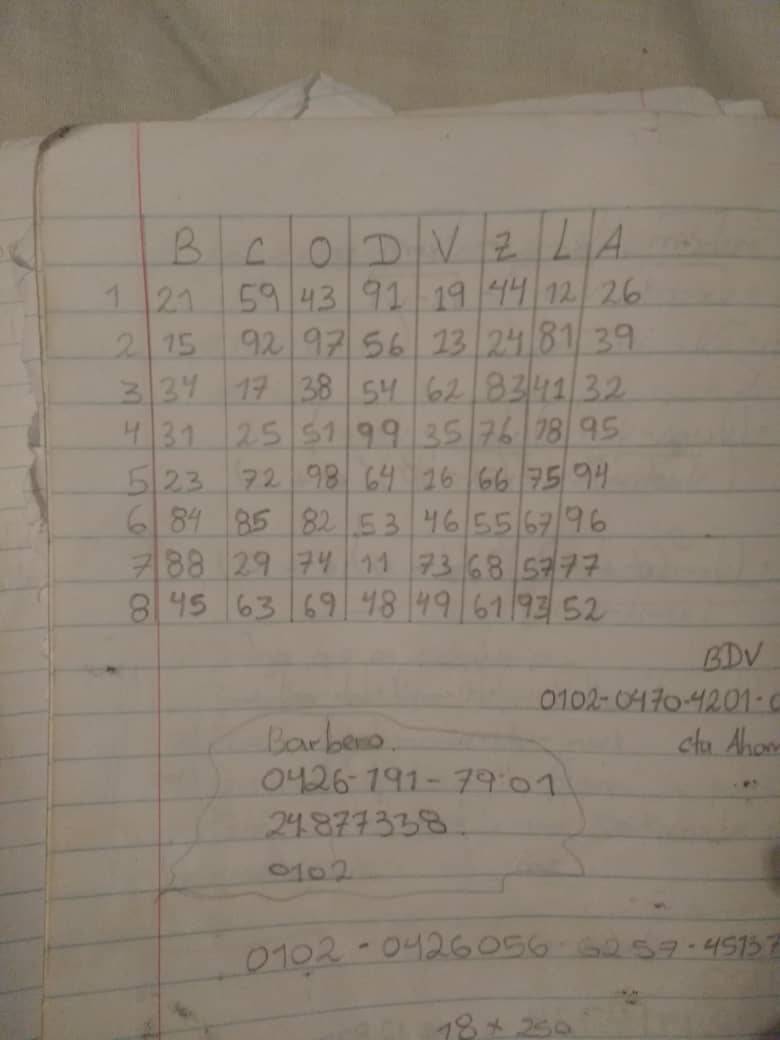 B C O D V Z L A
1 21 59 43 91 19 44 12 26
2 15 92 97 56 13 24 81 39
3 34 17 38 54 62 83 41 32
4 31 25 51 99 35 76 18 95
5 23 72 98 64 16 66 75 94
6 84 85 82 53 46 55 67 96
7 88 29 74 11 73 68 57 77
8 45 63 69 48 49 61 93 52
BDV
0102-0470-4201-0
cta Ahorr
Barbero.
0426-191-79-01
24.877338.
0102
0102-0426056 6257-45137
18 x 250